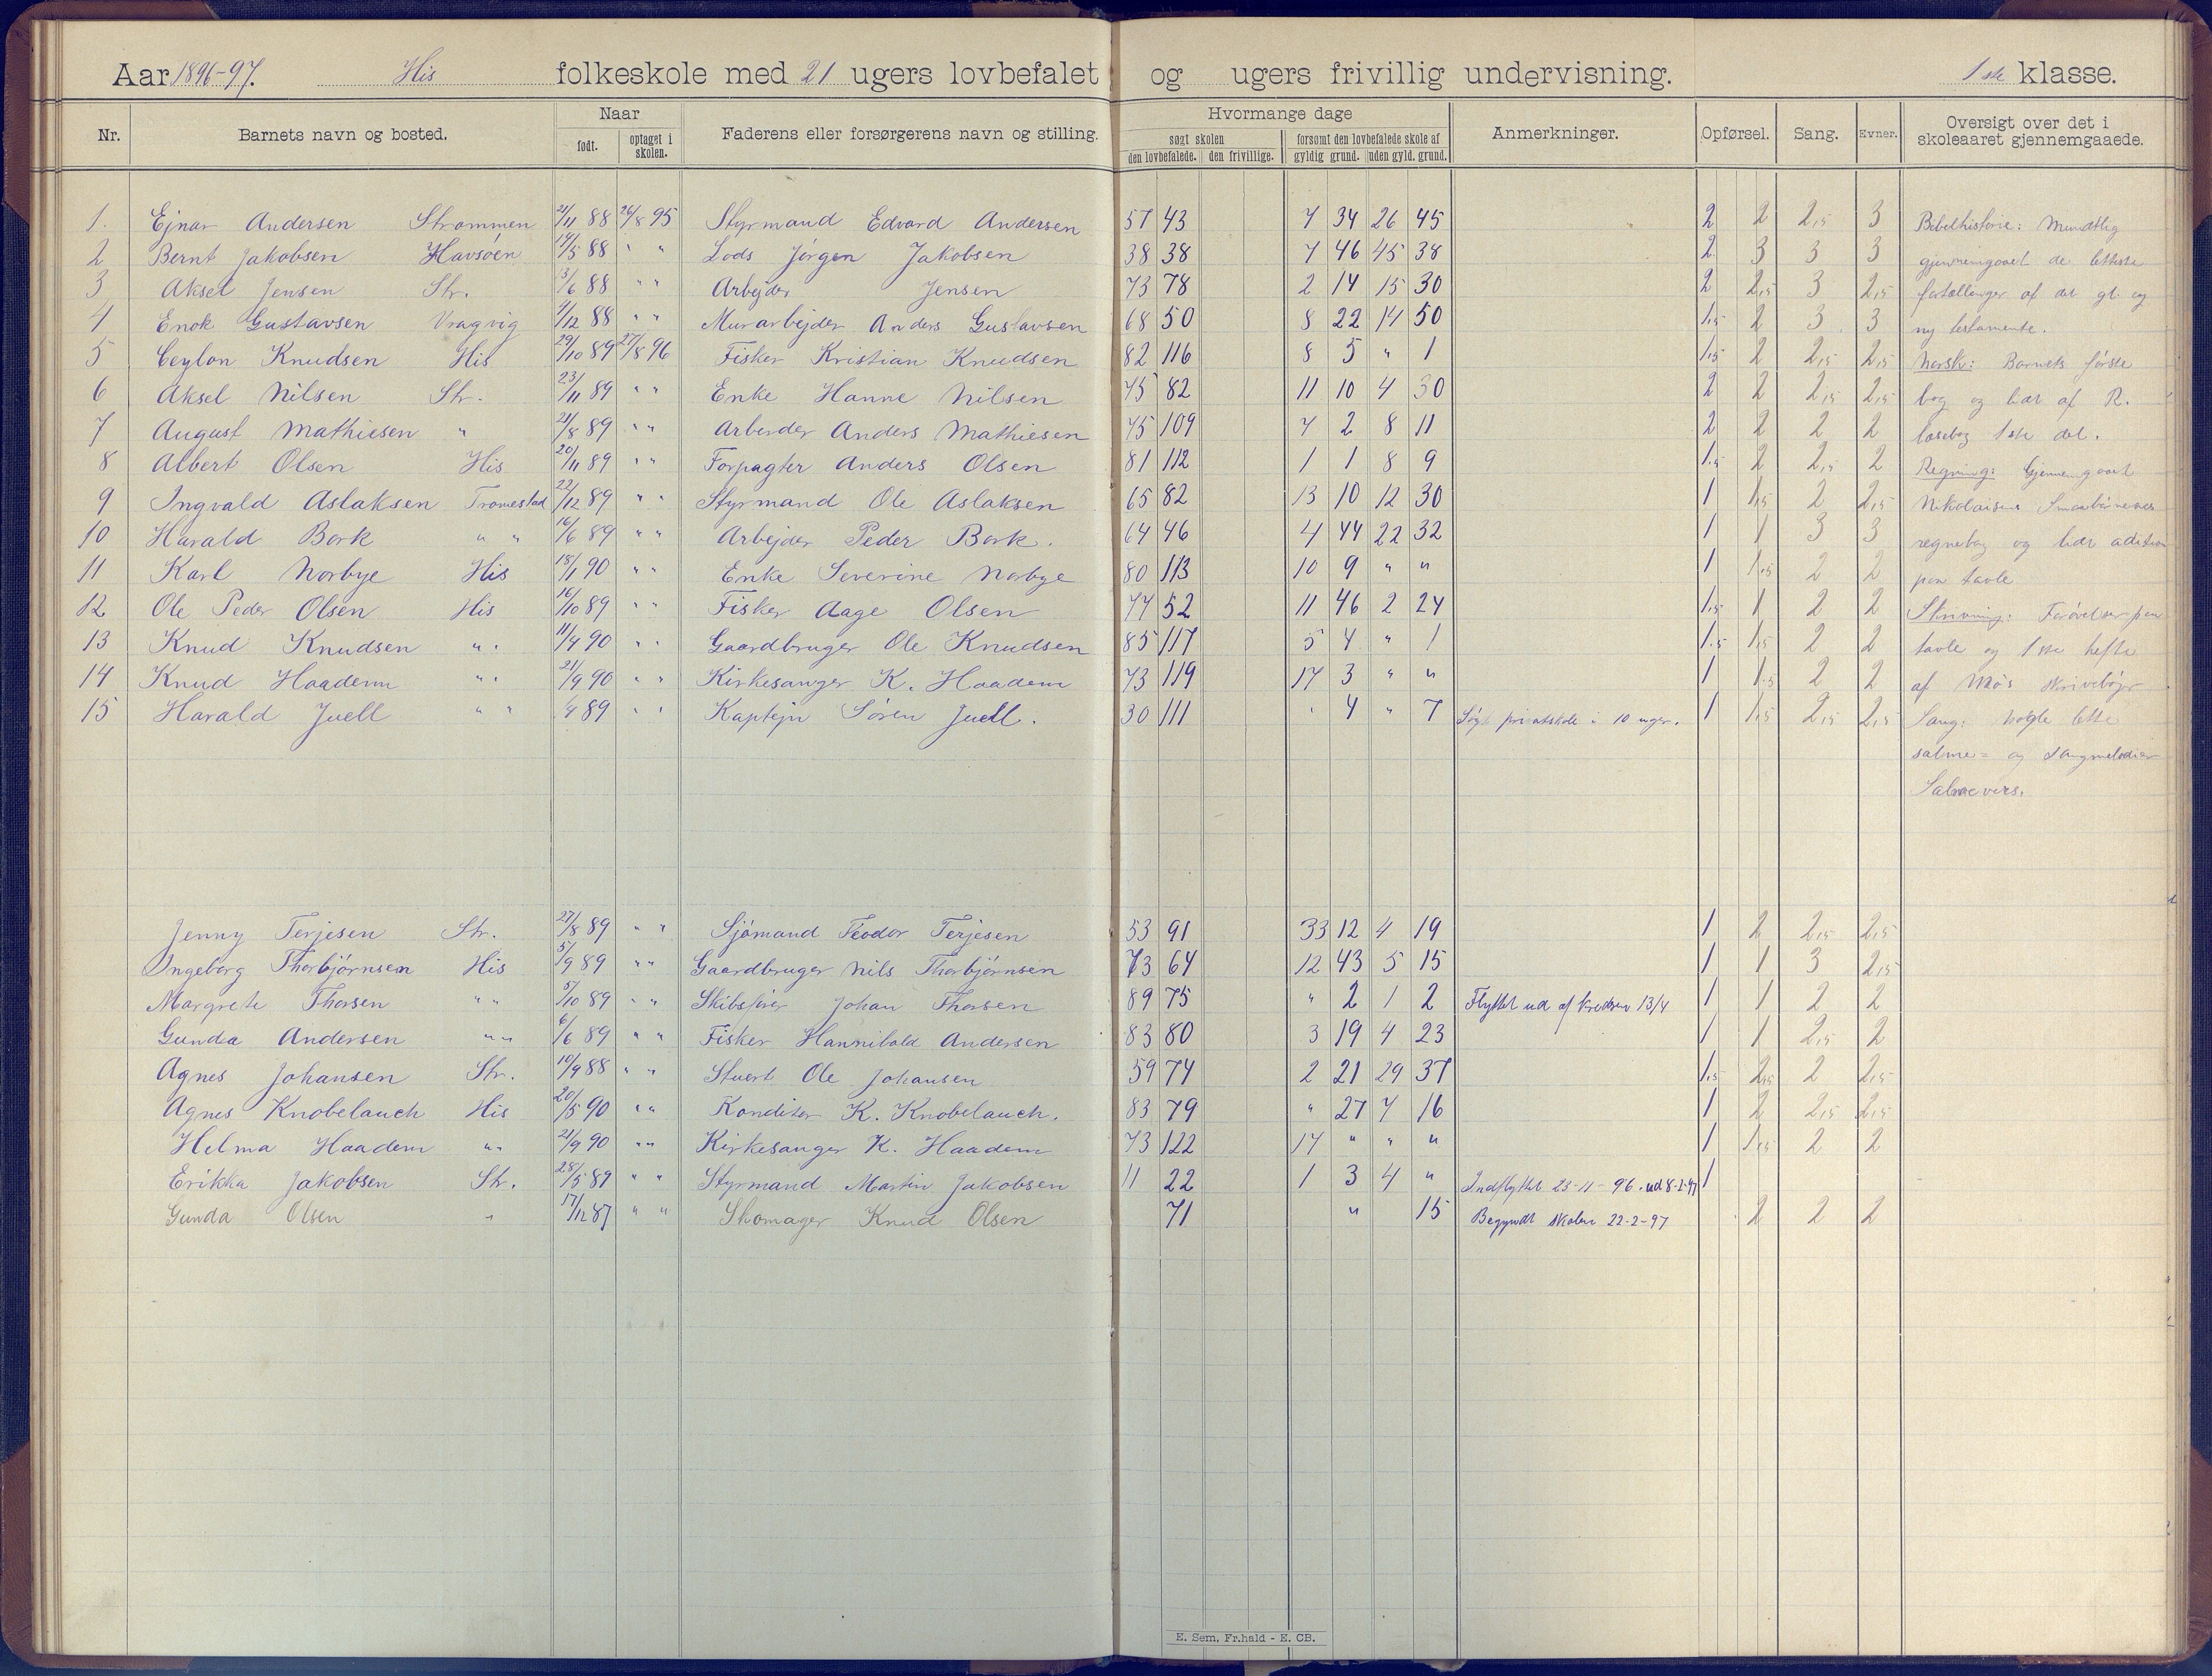 Aar 1896-97. His folkeskole med 21 ugers lovbefalet og ugers frivillig undervisning. 1ste klasse.
Nr. Barnets navn og bosted. Naar født. optaget i skolen. Faderens eller forsørgerens navn og stilling. Hvormange dage søgt skolen den lovbefalede. den frivillige. forsømt den lovbefalede skole af gyldig grund. uden gyld. grund. Anmerkninger. Opførsel. Sang. Evner. Oversigt over det i skoleaaret gjennemgaaede.
1. Ejnar Andersen Strømmen 21/11 88 26/8 95 Styrmand Edvard Andersen 57 43 7 34 26 45 2 2 2,5 3 Bibelhistorie: Mundtlig
2 Bernt Jakobsen Havsøen 14/5 88 " " Lods Jørgen Jakobsen 38 38 7 46 45 38 2 3 3 3 gjennemgaaet de letteste
3 Aksel Jensen Str. 3/6 88 " " Arbejder Jensen 73 78 2 14 15 30 2 2,5 3 2,5 fortællinger af det gl. og
4 Enok Gustavsen Vragvig 4/12 88 " " Murarbejder Anders Gustavsen 68 50 8 22 14 50 1,5 2 3 3 ny testamente.
5 Ceylon Knudsen His 29/10 89 27/8 96 Fisker Kristian Knudsen 82 116 8 5 " 1 1,5 2 2,5 2,5 Norsk: Barnets første
6 Aksel Nilsen Str. 23/11 89 " " Enke Hanne Nilsen 75 82 11 10 4 30 2 2 2,5 2,5 bog og lidt af R.
7 August Mathiesen " 21/8 89 " " Arbeider Anders Mathiesen 75 109 7 2 8 11 2 2 2 2 læsebog 1ste del.
8 Albert Olsen His 20/11 89 " " Forpagter Anders Olsen 81 112 1 1 8 9 1.5 2 2,5 2 Regning: Gjennemgaaet
9 Ingvald Aslaksen Tromestad 22/12 89 " " Styrmand Ole Aslaksen 65 82 13 10 12 30 1 1,5 2 2,5 Nikolaisens Smaabørnenes
10 Harald Bork " " 16/6 89 " " Arbejder Peder Bork. 64 46 4 44 22 32 1 1 3 3 regnebog og lidt adition
11 Karl Norbye His 18/1 90 " " Enke Severine Norbye 80 113 10 9 " " 1 1.5 2 2 paa tavle
12 Ole Peder Olsen His 16/10 89 " " Fisker Aage Olsen 77 52 11 46 2 24 1.5 1 2 2 Skrivning: Forøvelser paa
13 Knud Knudsen " " 11/4 90 " " Gaardbruger Ole Knudsen 85 117 5 4 " 1 1.5 1,5 2 2 tavle og 1ste hefte
14 Knud Haadem " " 21/9 90 " " Kirkesanger K. Haadem 73 119 17 3 " " 1 1.5 2 2 af Møs skrivebøger
15 Harald Juell " " 89 " " Kaptejn Søren Juell. 30 111 " 4 " 7 Søgt privatskole i 10 uger. 1 1,5 2,5 2,5 Sang: Nogle lette
salme- og sangmelodier
Salmevers.
Jenny Terjesen Str. 27/8 89 " " Sjømand Feodor Terjesen 53 91 33 12 4 19 1 2 2,5 2,5
Ingeborg Thorbjørnsen His 5/9 89 " " Gaardbruger Nils Thorbjørnsen 73 64 12 43 5 15 1 1 3 2,5
Margrete Thorsen " " 5/10 89 " " Skibsfører Johan Thorsen 89 75 " 2 1 2 Flyttet ud af kredsen 13/4 1 1 2 2
Gunda Andersen " " 6/6 89 " " Fisker Hannibald Andersen 83 80 3 19 4 23 1 1 2,5 2
Agnes Johansen Str. 10/9 88 " " Stuert Ole Johansen 59 74 2 21 29 37 1,5 2,5 2 2,5
Agnes Knobelauch His 20/5 90 " " Konditor K. Knobelauch. 83 79 " 27 7 16 1 2 2,5 2,5
Helma Haadem " " 21/9 90 " " Kirkesanger K. Haadem 73 122 17 " " " 1 1,5 2 2
Erikka Jakobsen Str. 28/5 89 " " Styrmand Martin Jakobsen 11 22 1 3 4 " Indflyttet 23-11-96. ud 8-2-97 1
Gunda Olsen " 17/12 87 " " Skomager Knud Olsen 71 " 15 Begyndt skolen 22-2-97 2 2 2
E. Sem, Fr.hald - E. CB.